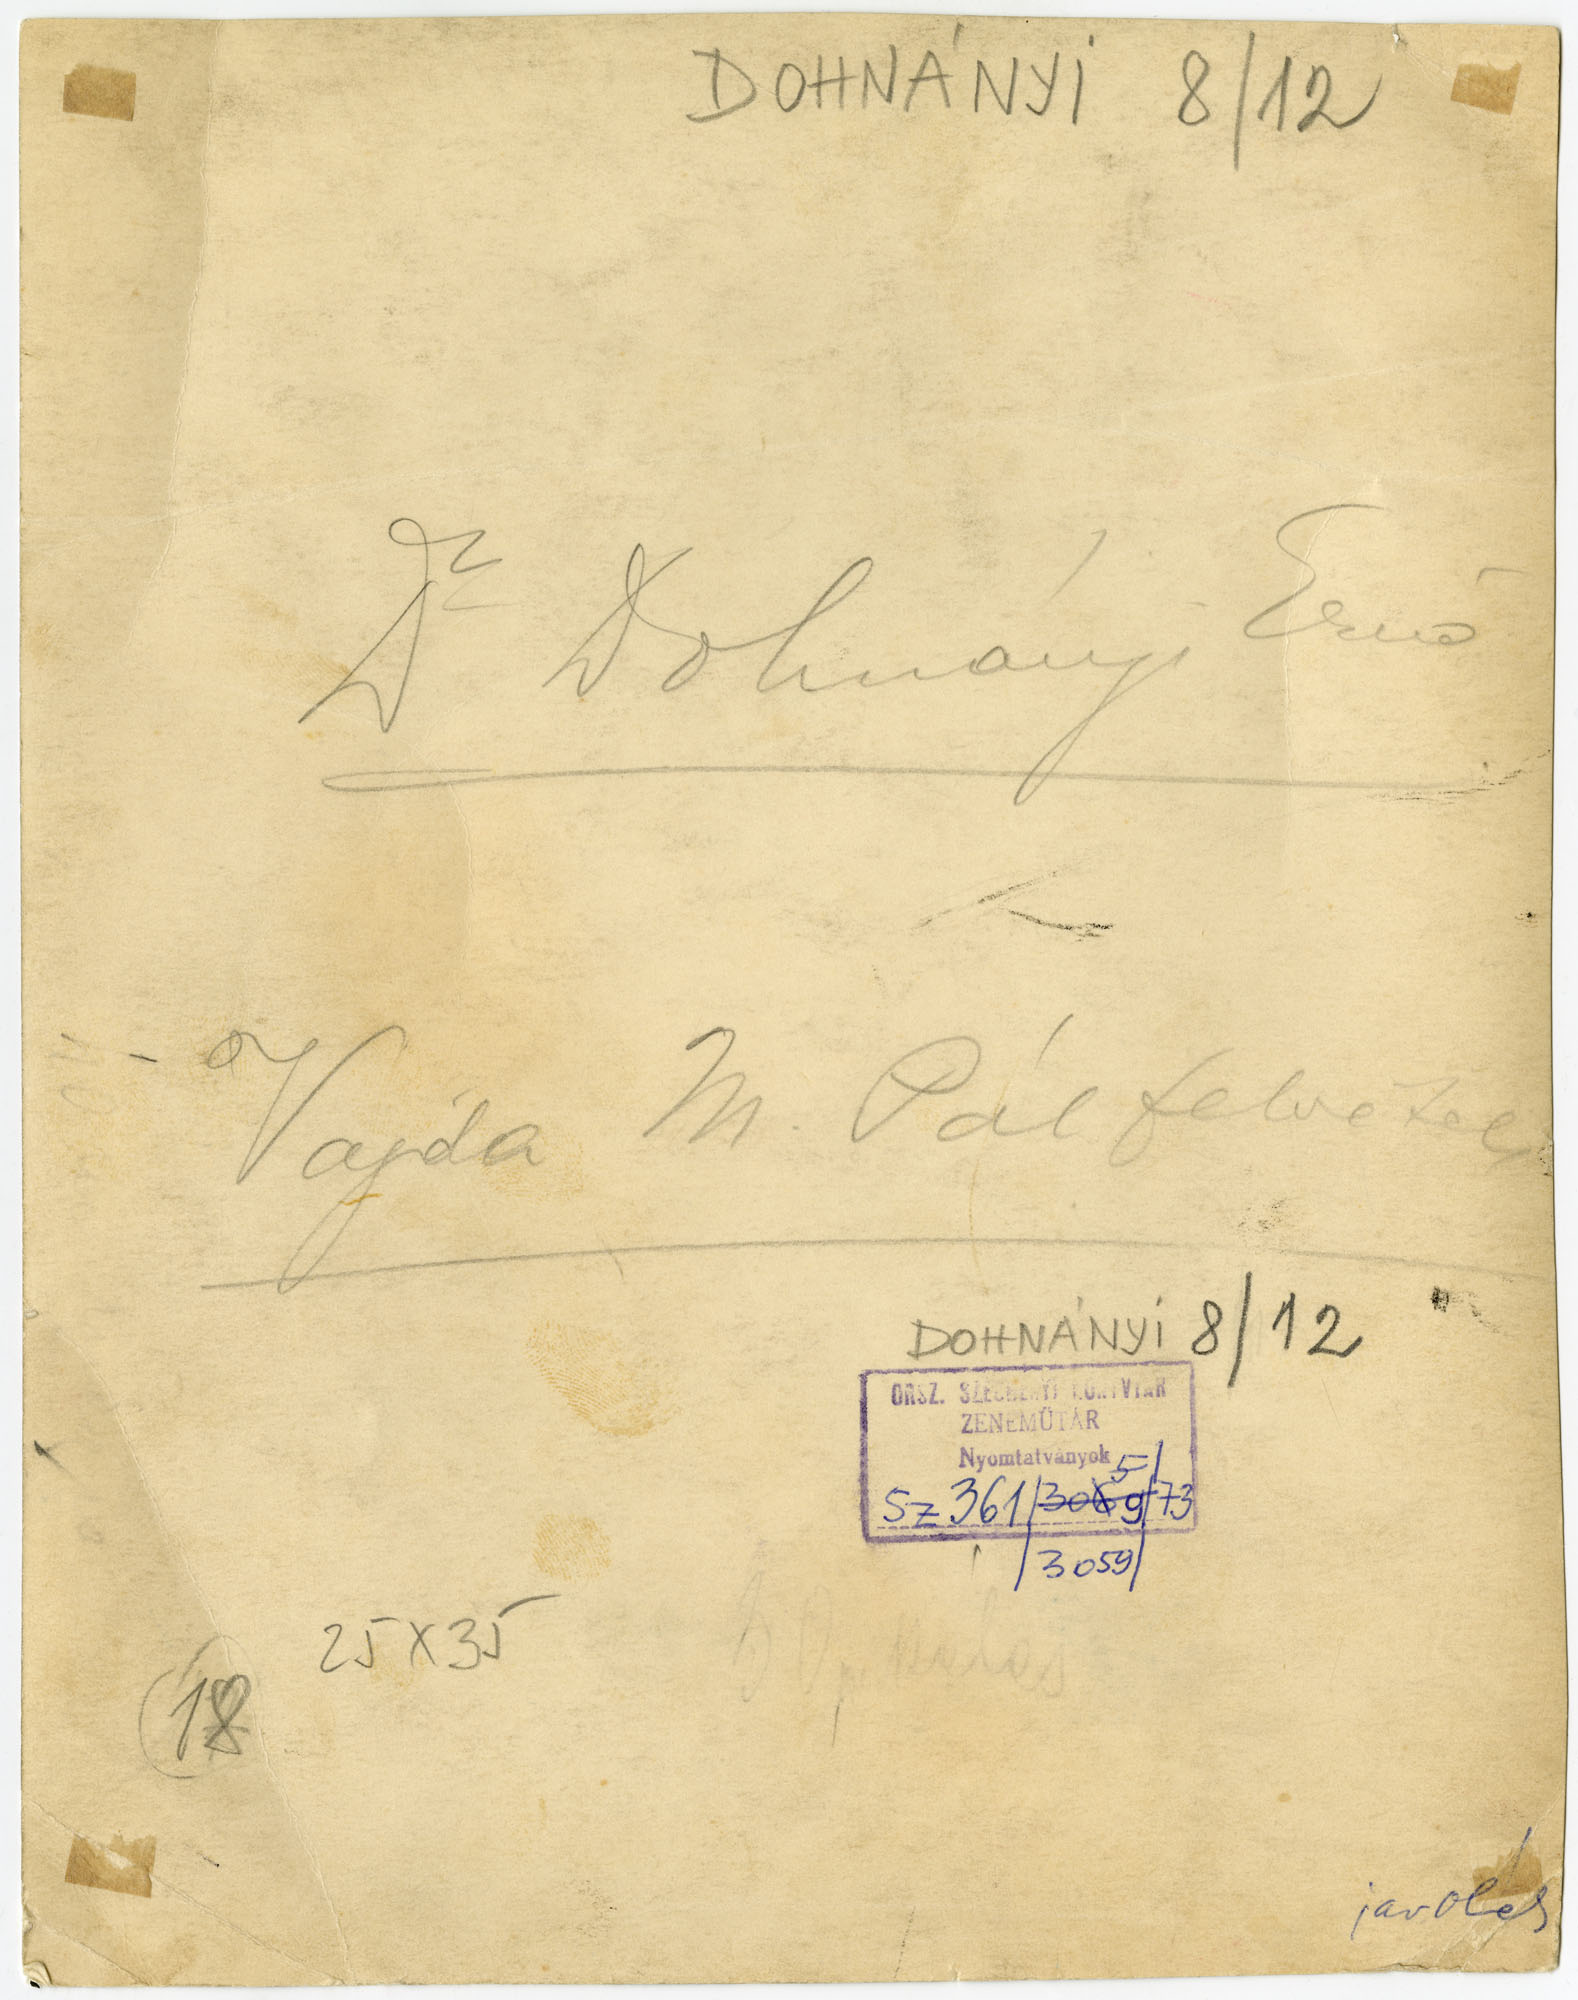 DOHNÁNYI 8/12
Dr Dohnányi Ernő
Vajda M. Pál felvétele
DOHNÁNYI 8/12
ORSZ. SZÉCHÉNYI KÖNYVTÁR
ZENEMŰTÁR
Nyomtatványok 5/
Sz 361/3069/73
/3059/
25x35
18